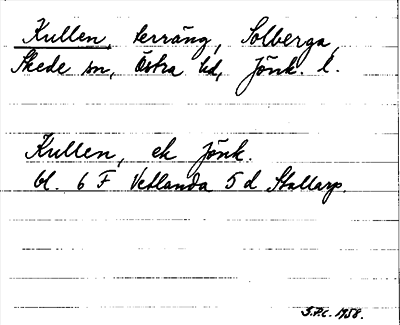 Kullen, terräng, Solberga,
Skede sn, Östra hd, Jönk. l.
Kullen, ek Jönk.
bl. 6 F Vetlanda 5 d Stallarp.
1958.